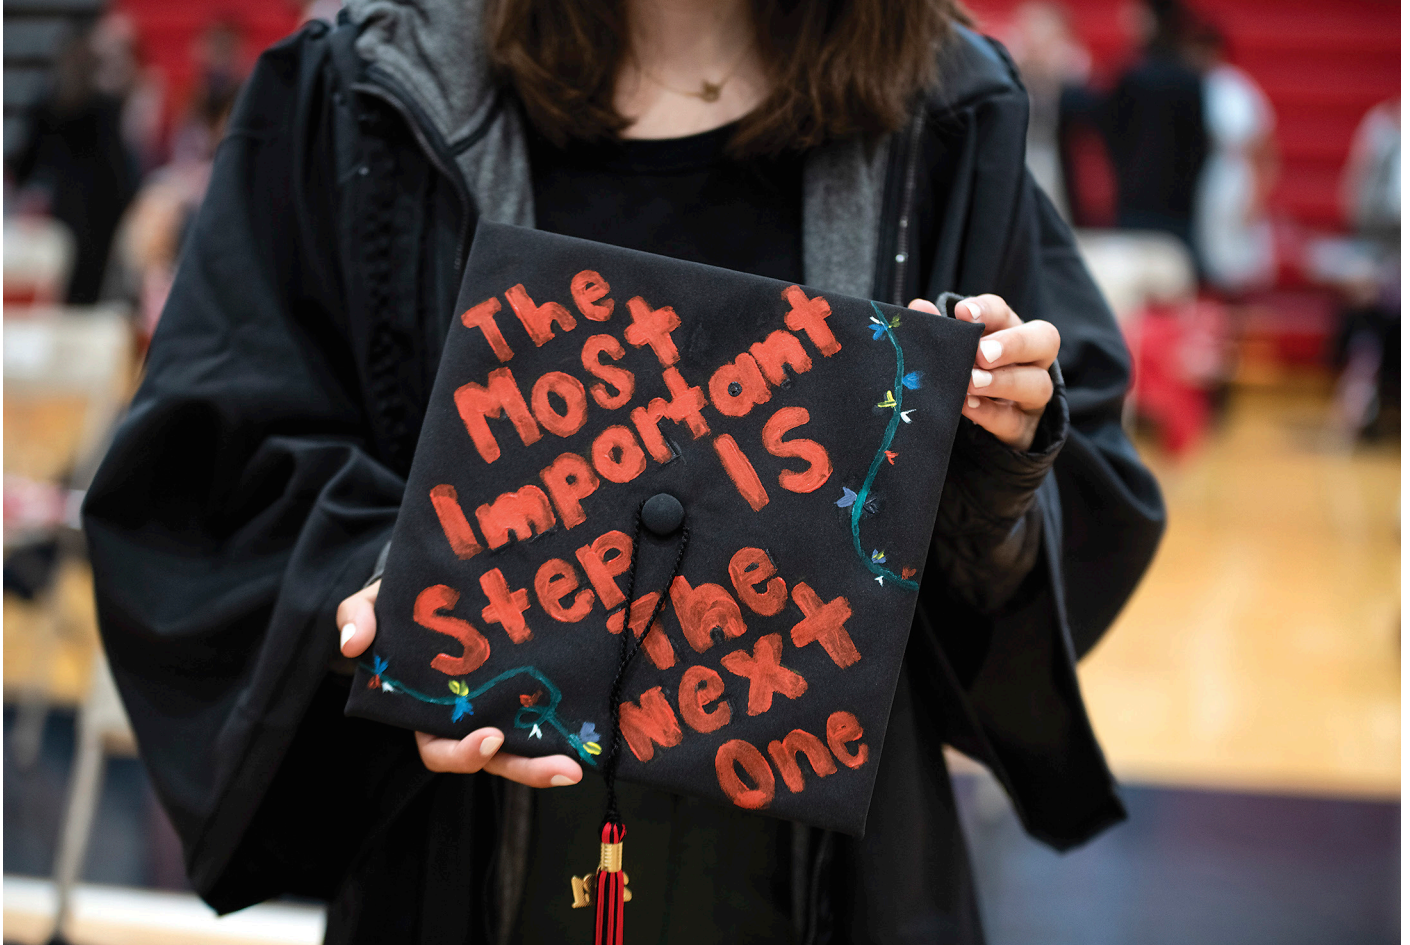 The
Most
Important
Is
Step
The
Next
One